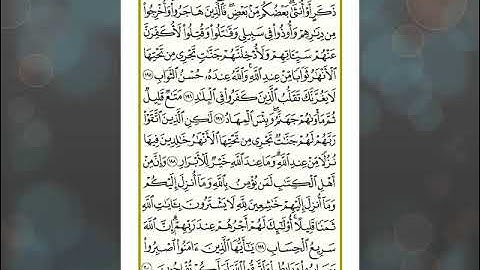 ذَكَرٍ أَوْ أُنثَىٰ ۖ بَعْضُكُم مِّنۢ بَعْضٍ ۖ فَٱلَّذِينَ هَاجَرُوا۟ وَأُخْرِجُوا۟
مِن دِيَـٰرِهِمْ وَأُوذُوا۟ فِى سَبِيلِى وَقَـٰتَلُوا۟ وَقُتِلُوا۟ لَأُكَفِّرَنَّ
عَنْهُمْ سَيِّـَٔاتِهِمْ وَلَأُدْخِلَنَّهُمْ جَنَّـٰتٍ تَجْرِى مِن تَحْتِهَا
ٱلْأَنْهَـٰرُ ثَوَابًا مِّنْ عِندِ ٱللَّهِ ۗ وَٱللَّهُ عِندَهُۥ حُسْنُ ٱلثَّوَابِ ١٩٥
لَا يَغُرَّنَّكَ تَقَلُّبُ ٱلَّذِينَ كَفَرُوا۟ فِى ٱلْبِلَـٰدِ ١٩٦ مَتَـٰعٌ قَلِيلٌ
ثُمَّ مَأْوَىٰهُمْ جَهَنَّمُ ۚ وَبِئْسَ ٱلْمِهَادُ ١٩٧ لَـٰكِنِ ٱلَّذِينَ ٱتَّقَوْا۟
رَبَّهُمْ لَهُمْ جَنَّـٰتٌ تَجْرِى مِن تَحْتِهَا ٱلْأَنْهَـٰرُ خَـٰلِدِينَ فِيهَا
نُزُلًا مِّنْ عِندِ ٱللَّهِ ۗ وَمَا عِندَ ٱللَّهِ خَيْرٌ لِّلْأَبْرَارِ ١٩٨ وَإِنَّ مِنْ
أَهْلِ ٱلْكِتَـٰبِ لَمَن يُؤْمِنُ بِٱللَّهِ وَمَآ أُنزِلَ إِلَيْكُمْ
وَمَآ أُنزِلَ إِلَيْهِمْ خَـٰشِعِينَ لِلَّهِ لَا يَشْتَرُونَ بِـَٔايَـٰتِ ٱللَّهِ
ثَمَنًا قَلِيلًا ۗ أُو۟لَـٰٓئِكَ لَهُمْ أَجْرُهُمْ عِندَ رَبِّهِمْ ۗ إِنَّ ٱللَّهَ
سَرِيعُ ٱلْحِسَابِ ١٩٩ يَـٰٓأَيُّهَا ٱلَّذِينَ ءَامَنُوا۟ ٱصْبِرُوا۟